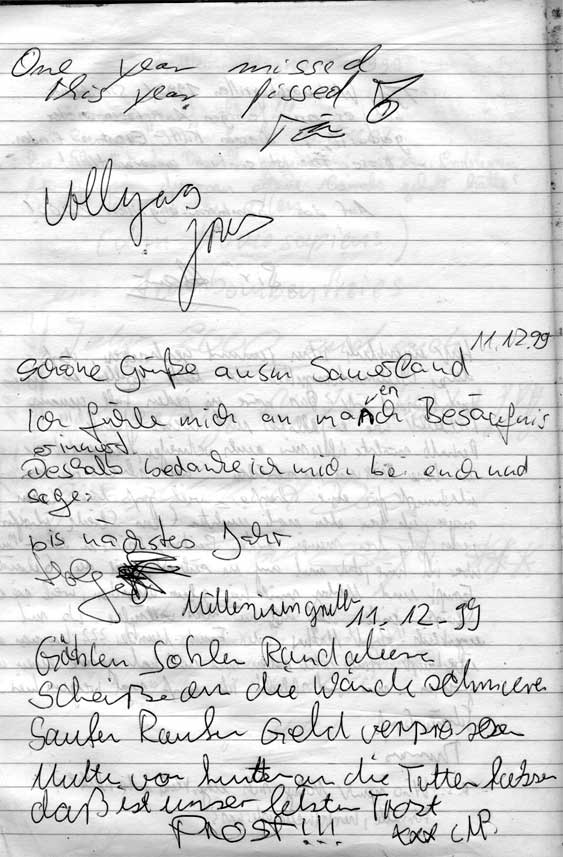 One year missed
this year pissed
Wollgang
11.12.99
schöne Grüße ausm Sauerland
Ich fühle mich an manch Besäufnis
en
erinnert.
Deshalb bedanke ich mich bei euch und
sage:
bis nächstes Jahr
Holger
11.12-99
Göblen Sobler Randaliere
Scheiße an die Wände schmieren
Saufen Raufen Geld verprassen
Mutter von hinten an die Titten fassen
daß ist unser letzter Trost
PROST!!!
xxx